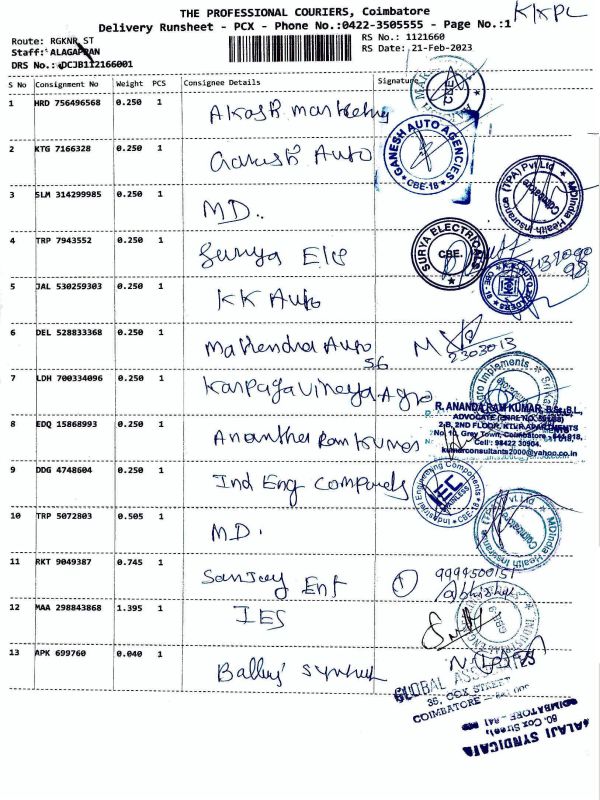 THE PROFESSIONAL COURIERS, Coimbatore
Delivery Runsheet - PCX - Phone No.:0422-3505555 - Page No.:1
KKPL
Route: RGKNR_ST
RS No.: 1121660
Staff: ALAGAPPAN
RS Date: 21-Feb-2023
DRS No.: DCJB112166001
S No Consignment No Weight PCS Consignee Details Signature
1 HRD 756496568 0.250 1 Akash Marketing
2 KTG 7166328 0.250 1 Auto
GANESH AUTO AGENCIES
* CBE-18 *
3 SLM 314299985 0.250 1 MD.
MDIndia Health Insurance (TPA) Pvt Ltd
Coimbatore
4 TRP 7943552 0.250 1 Surya Ele
SURYA ELECTRICALS
CBE.
98
5 JAL 530259303 0.250 1 KK Auto
6 DEL 528833368 0.250 1 Mahendra Auto
56
2303013
7 LDH 700334096 0.250 1 Karpagavinaya Agro
8 EDQ 15868993 0.250 1 Anantha Ram Kumar
R. ANANDA RAM KUMAR, B.Sc.,B.L.,
ADVOCATE
2-B, 2ND FLOOR, APARTMENTS
Grey Town, Coimbatore - 641 018.
Cell : 98422 30904.
kumarconsultants2000@yahoo.co.in
9 DDG 4748604 0.250 1 Ind Eng Components
Engineering Components
IEC
STAINLESS
10 TRP 5072803 0.505 1 M.D.
MDIndia Health Insurance (TPA) Pvt Ltd
Coimbatore
11 RKT 9049387 0.745 1 Sanjay Ent
1
9999500151
Abhishek
12 MAA 298843868 1.395 1 IES
13 APK 699760 0.040 1 Balaji Syndicate
GLOBAL ASSOCIATES
35, COX STREET
COIMBATORE - 641 001
BALAJI SYNDICATE
60, Cox Street,
COIMBATORE - 641